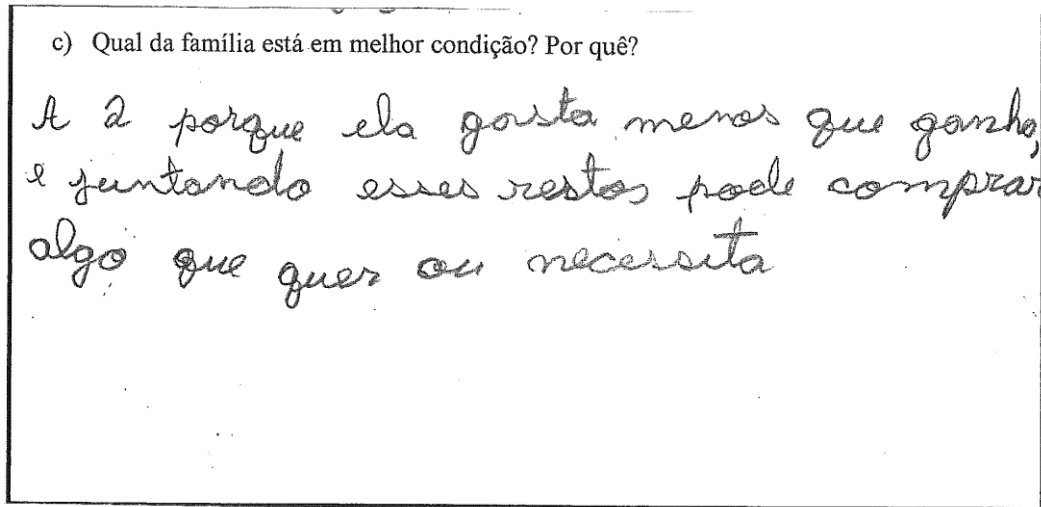 c) Qual da família está em melhor condição? Por quê?
A 2 porque ela gasta menos que ganha,
e juntando esses restos pode comprar
algo que quer ou necessita